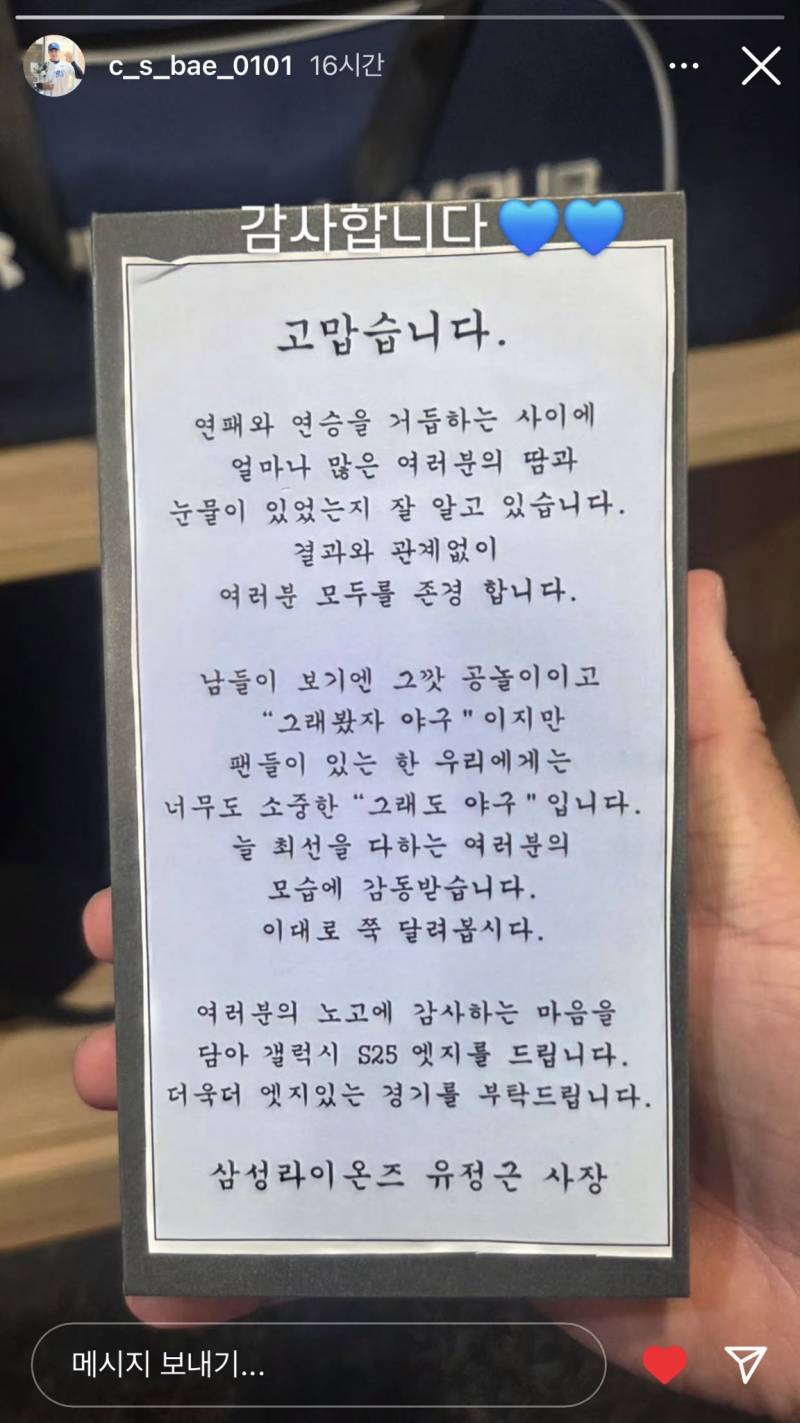 c_s_bae_0101 16시간
감사합니다💙💙
고맙습니다.
연패와 연승을 거듭하는 사이에
얼마나 많은 여러분의 땀과
눈물이 있었는지 잘 알고 있습니다.
결과와 관계없이
여러분 모두를 존경 합니다.
남들이 보기엔 그깟 공놀이이고
“그래봤자 야구"이지만
팬들이 있는 한 우리에게는
너무도 소중한 “그래도 야구"입니다.
늘 최선을 다하는 여러분의
모습에 감동받습니다.
이대로 쭉 달려봅시다.
여러분의 노고에 감사하는 마음을
담아 갤럭시 S25 엣지를 드립니다.
더욱더 엣지있는 경기를 부탁드립니다.
삼성라이온즈 유정근 사장
메시지 보내기...